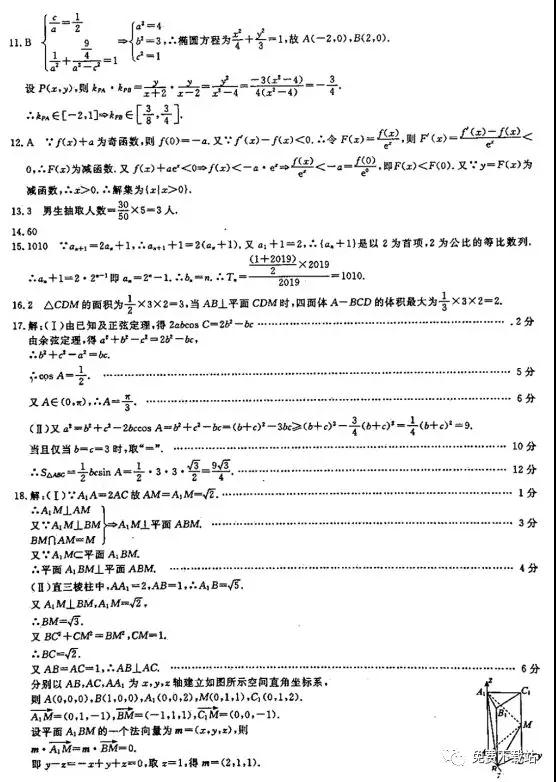 11. B { c/a=1/2, 1/a²+(9/4)/(a²-c²)=1 ⇒ { a²=4, b²=3, c²=1 ,∴椭圆方程为x²/4+y²/3=1,故 A(-2,0),B(2,0).
设 P(x,y),则 k_PA·k_PB=y/(x+2)·y/(x-2)=y²/(x²-4)=-3(x²-4)/4(x²-4)=-3/4.
∴k_PA∈[-2,1]⇒k_PB∈[3/8,3/4].
12. A ∵f(x)+a为奇函数,则 f(0)=-a.又∵f′(x)-f(x)<0.∴令 F(x)=f(x)/eˣ,则 F′(x)=(f′(x)-f(x))/eˣ<
0,∴F(x)为减函数.又 f(x)+aeˣ<0⇒f(x)<-a·eˣ⇒f(x)/eˣ<-a=f(0)/e⁰,即F(x)<F(0).又∵y=F(x)为
减函数,∴x>0.∴解集为{x|x>0}.
13. 3 男生抽取人数=30/50×5=3人.
14. 60
15. 1010 ∵aₙ₊₁=2aₙ+1,∴aₙ₊₁+1=2(aₙ+1).又 a₁+1=2,∴{aₙ+1}是以 2 为首项,2 为公比的等比数列.
∴aₙ+1=2·2ⁿ⁻¹即 aₙ=2ⁿ-1.∴bₙ=n.∴Tₙ=((1+2019)/2×2019)/2019=1010.
16. 2 △CDM 的面积为1/2×3×2=3,当 AB⊥平面 CDM 时,四面体 A-BCD 的体积最大为1/3×3×2=2.
17.解:(Ⅰ)由已知及正弦定理,得 2abcos C=2b²-bc ……2 分
由余弦定理,得 a²+b²-c²=2b²-bc,
∴b²+c²-a²=bc.
∴cos A=1/2. ……5 分
又 A∈(0,π),∴A=π/3. ……6 分
(Ⅱ)又 a²=b²+c²-2bccos A=b²+c²-bc=(b+c)²-3bc≥(b+c)²-3/4(b+c)²=1/4(b+c)²=9.
当且仅当 b=c=3 时,取“=”. ……10 分
∴S△ABC=1/2bcsin A=1/2·3·3·√3/2=9√3/4. ……12 分
18.解:(Ⅰ)∵A₁A=2AC 故 AM=A₁M=√2. ……1 分
∴A₁M⊥AM
又∵A₁M⊥BM }⇒A₁M⊥平面 ABM. ……3 分
BM∩AM=M
又∵A₁M⊂平面 A₁BM.
∴平面 A₁BM⊥平面 ABM. ……4 分
(Ⅱ)直三棱柱中,AA₁=2,AB=1,∴A₁B=√5.
又 A₁M⊥BM,A₁M=√2,
∴BM=√3.
又 BC²+CM²=BM²,CM=1.
∴BC=√2.
又 AB=AC=1,∴AB⊥AC. ……6 分
分别以 AB,AC,AA₁ 为 x,y,z 轴建立如图所示空间直角坐标系,
则 A(0,0,0),B(1,0,0),A₁(0,0,2),M(0,1,1),C₁(0,1,2).
A₁M=(0,1,-1),BM=(-1,1,1),C₁M=(0,0,-1).
设平面 A₁BM 的一个法向量为 m=(x,y,z),则
m·A₁M=m·BM=0.
即 y-z=-x+y+z=0,取 z=1,得 m=(2,1,1).
z
A₁ C₁
B₁
M
y
免费下载站